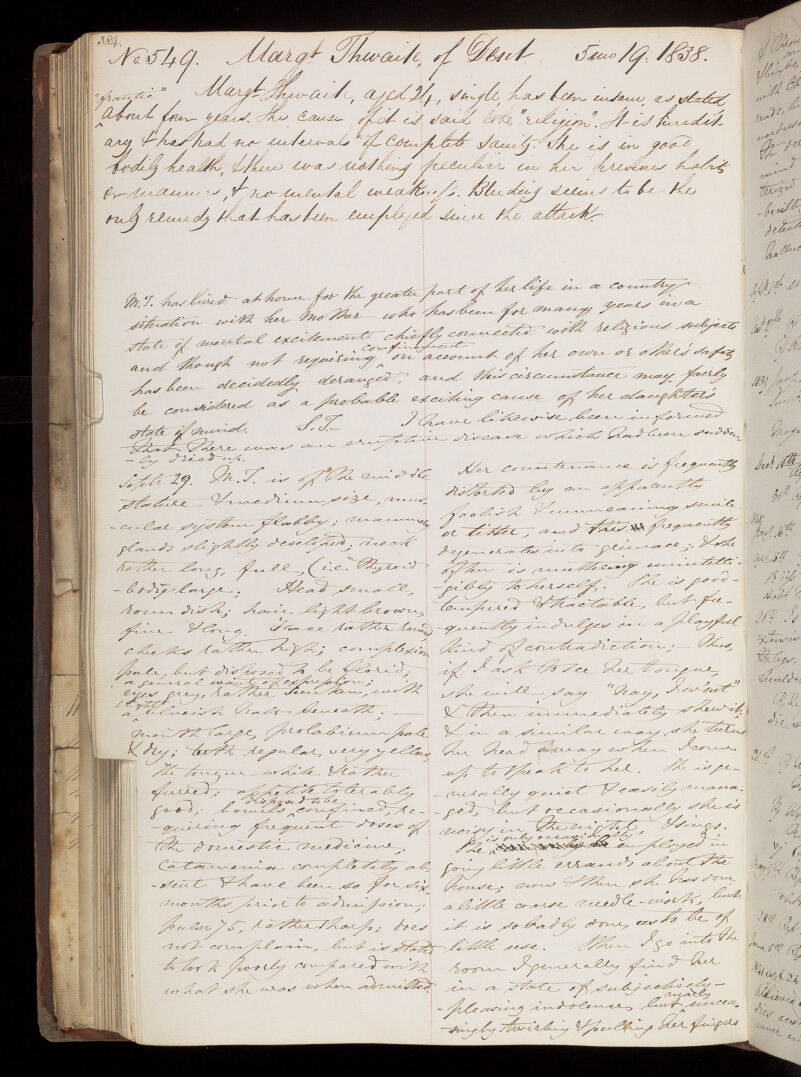 384.
No 549. Margt Thwaite, of Dent. 5mo 19. 1838.
"frantic" Margt Thwaite, aged 24, single, has been insane, as stated
about four years. The cause of it is said to be "religion". It is heredit-
ary & has had no intervals of complete sanity. She is in good
bodily health, & there was nothing peculiar in her previous habits
or manners, & no mental weakness. Bleeding seems to be the
only remedy that has been employed since the attack.
M.T. has lived at home for the greater part of her life in a country
situation with her Mother who has been for many years in a
state of mental excitement chiefly connected with religious subjects
and though not requiring confinement on account of her own or other's safety
has been decidedly deranged, and this circumstance may fairly
be considered as a probable exciting cause of her daughters
state of mind. I have likewise been informed
that there was an eruptive disease which had been sudden-
-ly dried up.
Septr 29. M.T. is of the middle
stature & medium size, mus-
-cular system flabby; mammary
glands slightly developed; neck
rather long, full, (i.e. Thyroid
-body large; Head small,
roundish; hair light brown,
fine & long. Face rather round
cheeks rather high; complexion
pale, but disposed to be florid,
a general want of expression;
eyes grey, rather sunken, with
a slight blueish halo beneath;
mouth large, prolabium pale
& dry; teeth regular, very yellow,
the tongue white & rather
furred; appetite tolerably
good; bowels disposed to be confined, re-
-quiring frequent doses of
the domestic medicine;
Catamenia completely ab-
-sent & have been so for six
months prior to admission;
pulse 75, rather sharp; does
not complain, but is stated
to look poorly compared with
what she was when admitted.
Her countenance is frequently
distorted by an apparently
foolish & unmeaning smile
or titter, and this frequently
degenerates into grimace; & she
often is muttering unintelli-
-gibly to herself. She is good-
tempered & tractable, but fre-
-quently indulges in a playful
kind of contradiction. Thus,
if I ask to see her tongue,
she will say "Nay, I will not"
& then immediately shew it;
& in a similar way she turns
her head away when I come
up to speak to her. She is ge-
-nerally quiet & easily mana-
-ged, but occasionally she is
noisy in the night, & sings.
She is only occasionally employed in
going little errands about the
house; now & then she has done
a little coarse needle-work, but
it is so badly done, as to be of
little use. When I go into the
room I generally find her
in a state of subjectively-
-pleasing indolence, but nearly uncea-
-singly twirling & pulling her fingers